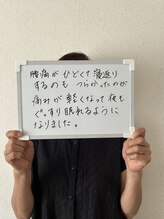 腰痛がひどくて寝返り
するのも つらかったのが
痛みが軽くなって夜も
ぐっすり眠れるように
なりました。